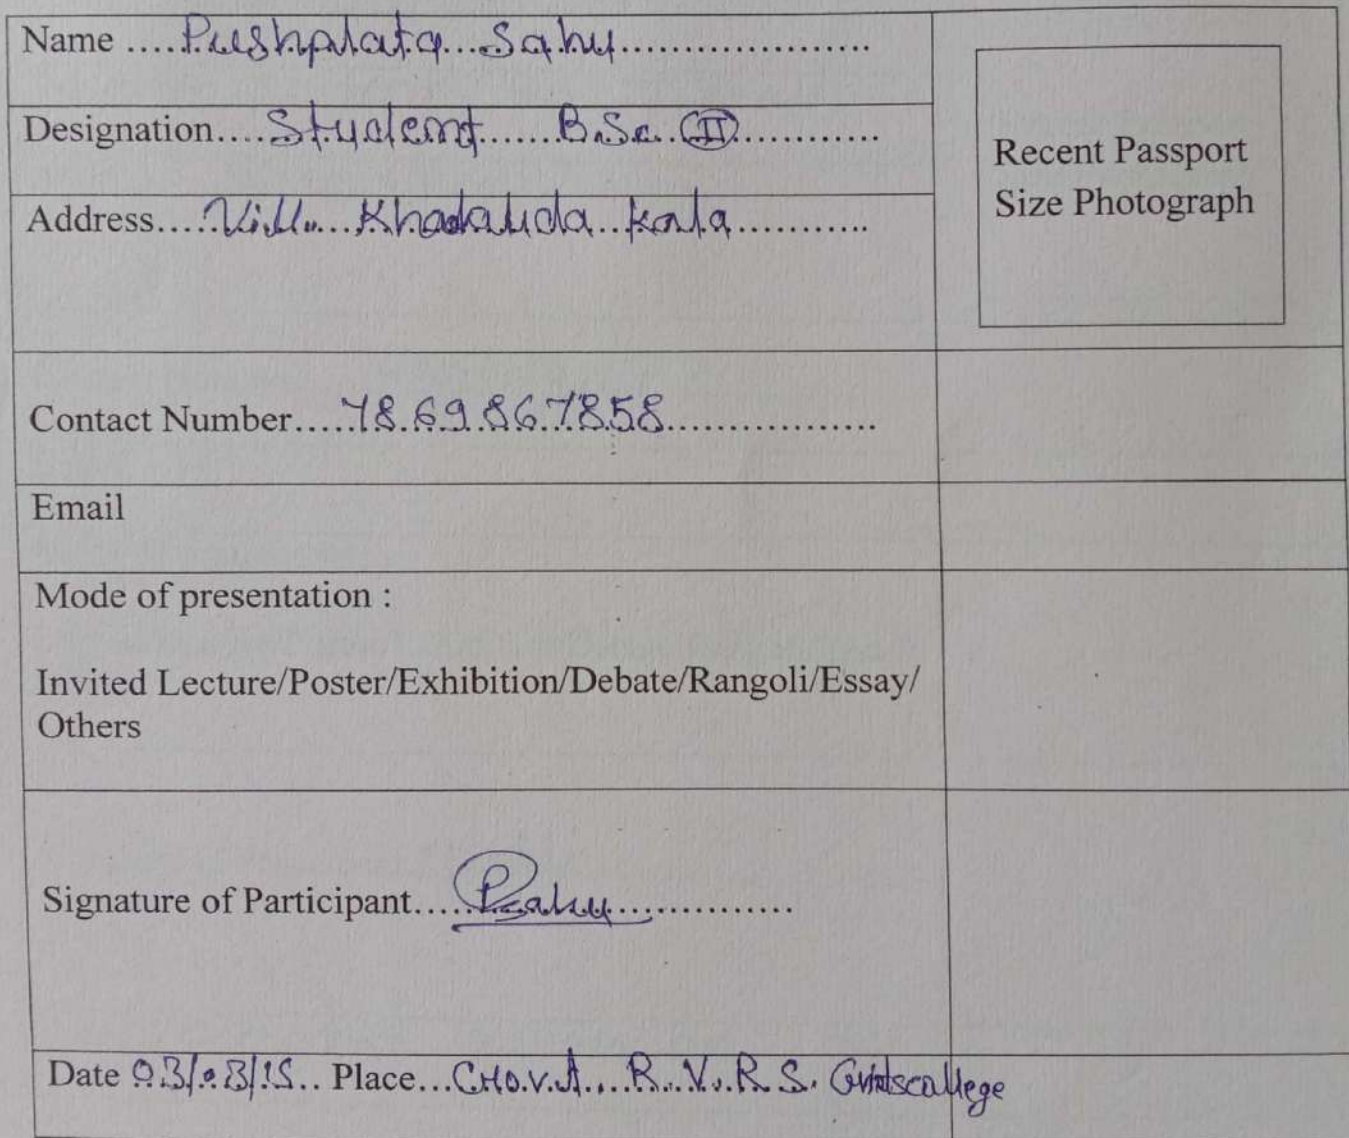 Name ....Pushplata...Sahu.....................
Designation....Student......B.Sc. (II)............
Recent Passport
Size Photograph
Address.....Vill....Khadauda..kala...........
Contact Number.....7869867858.................
Email
Mode of presentation :
Invited Lecture/Poster/Exhibition/Debate/Rangoli/Essay/
Others
Signature of Participant.....Psahu..............
Date 03/03/15.. Place...Govt....R.V.R.S. Girlscollege